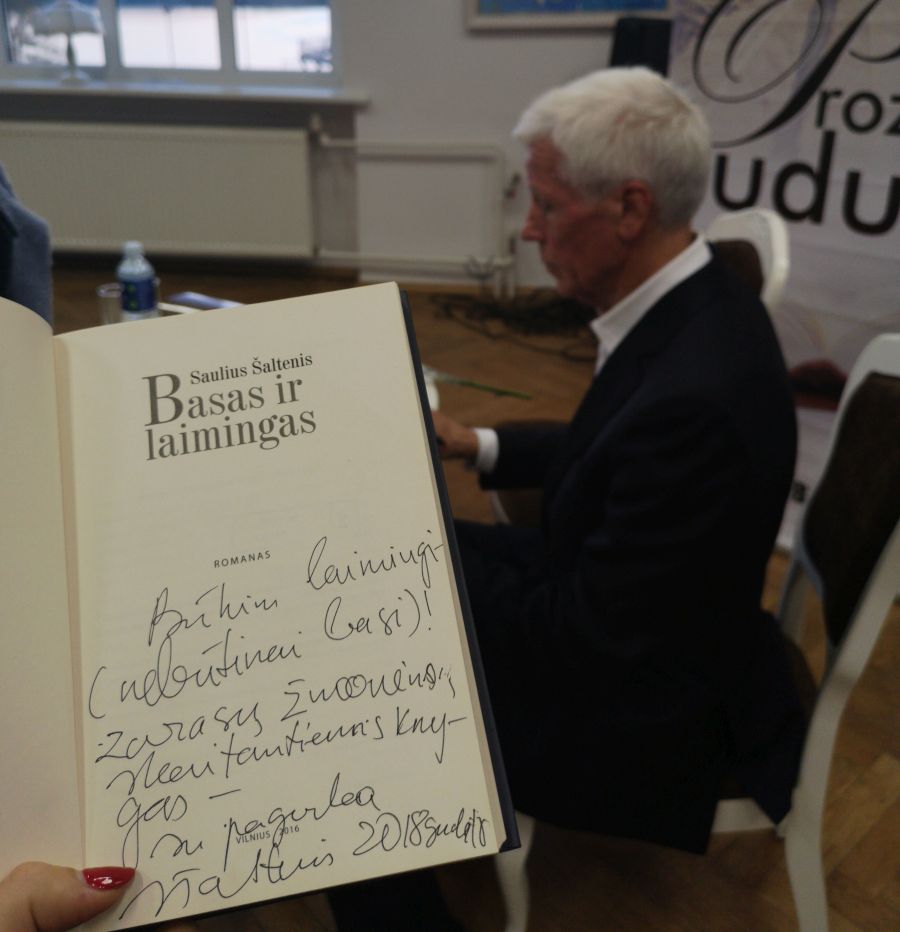 Saulius Šaltenis
Basas ir
laimingas
ROMANAS
Būkim laimingi
(nebūtinai basi)!
Zarasų žmonėms,
skaitantiems kny-
gas –
su pagarba
VILNIUS 2016
Šaltenis 2018
Proz
udu